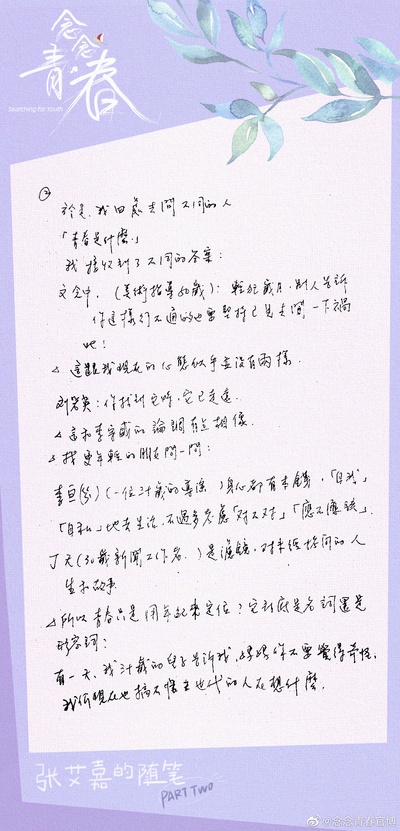 念念
青春
Searching for Youth
②
於是,我四處去問不同的人
「青春是什麼」
我接收到了不同的答案:
文念中,(美術指導 歲):輕狂歲月,別人告訴
你這樣行不通的也要堅持己見去闖一下禍
吧!
△ 這跟我現在的心態似乎並沒有兩樣.
劉若英:你找到它時,它已走遠.
△ 這和李宗盛的論調有點相像.
△ 找更年輕的朋友問一問:
(一位卅歲的導演)身心都有本錢,「自我」
「自私」地去生活,不過多考慮「對不對」「應不應該」.
丁天(30歲新聞工作者.)是濾鏡,對未經 的人
生 故事
△ 所以青春只是用年紀來定位?它到底是名詞還是
形容詞:
有一天,我卅歲的兒子告訴我,媽媽你不要覺得奇怪,
我們現在也搞不懂下世代的人在想什麼.
张艾嘉的随笔
PART TWO
@念念青春官博